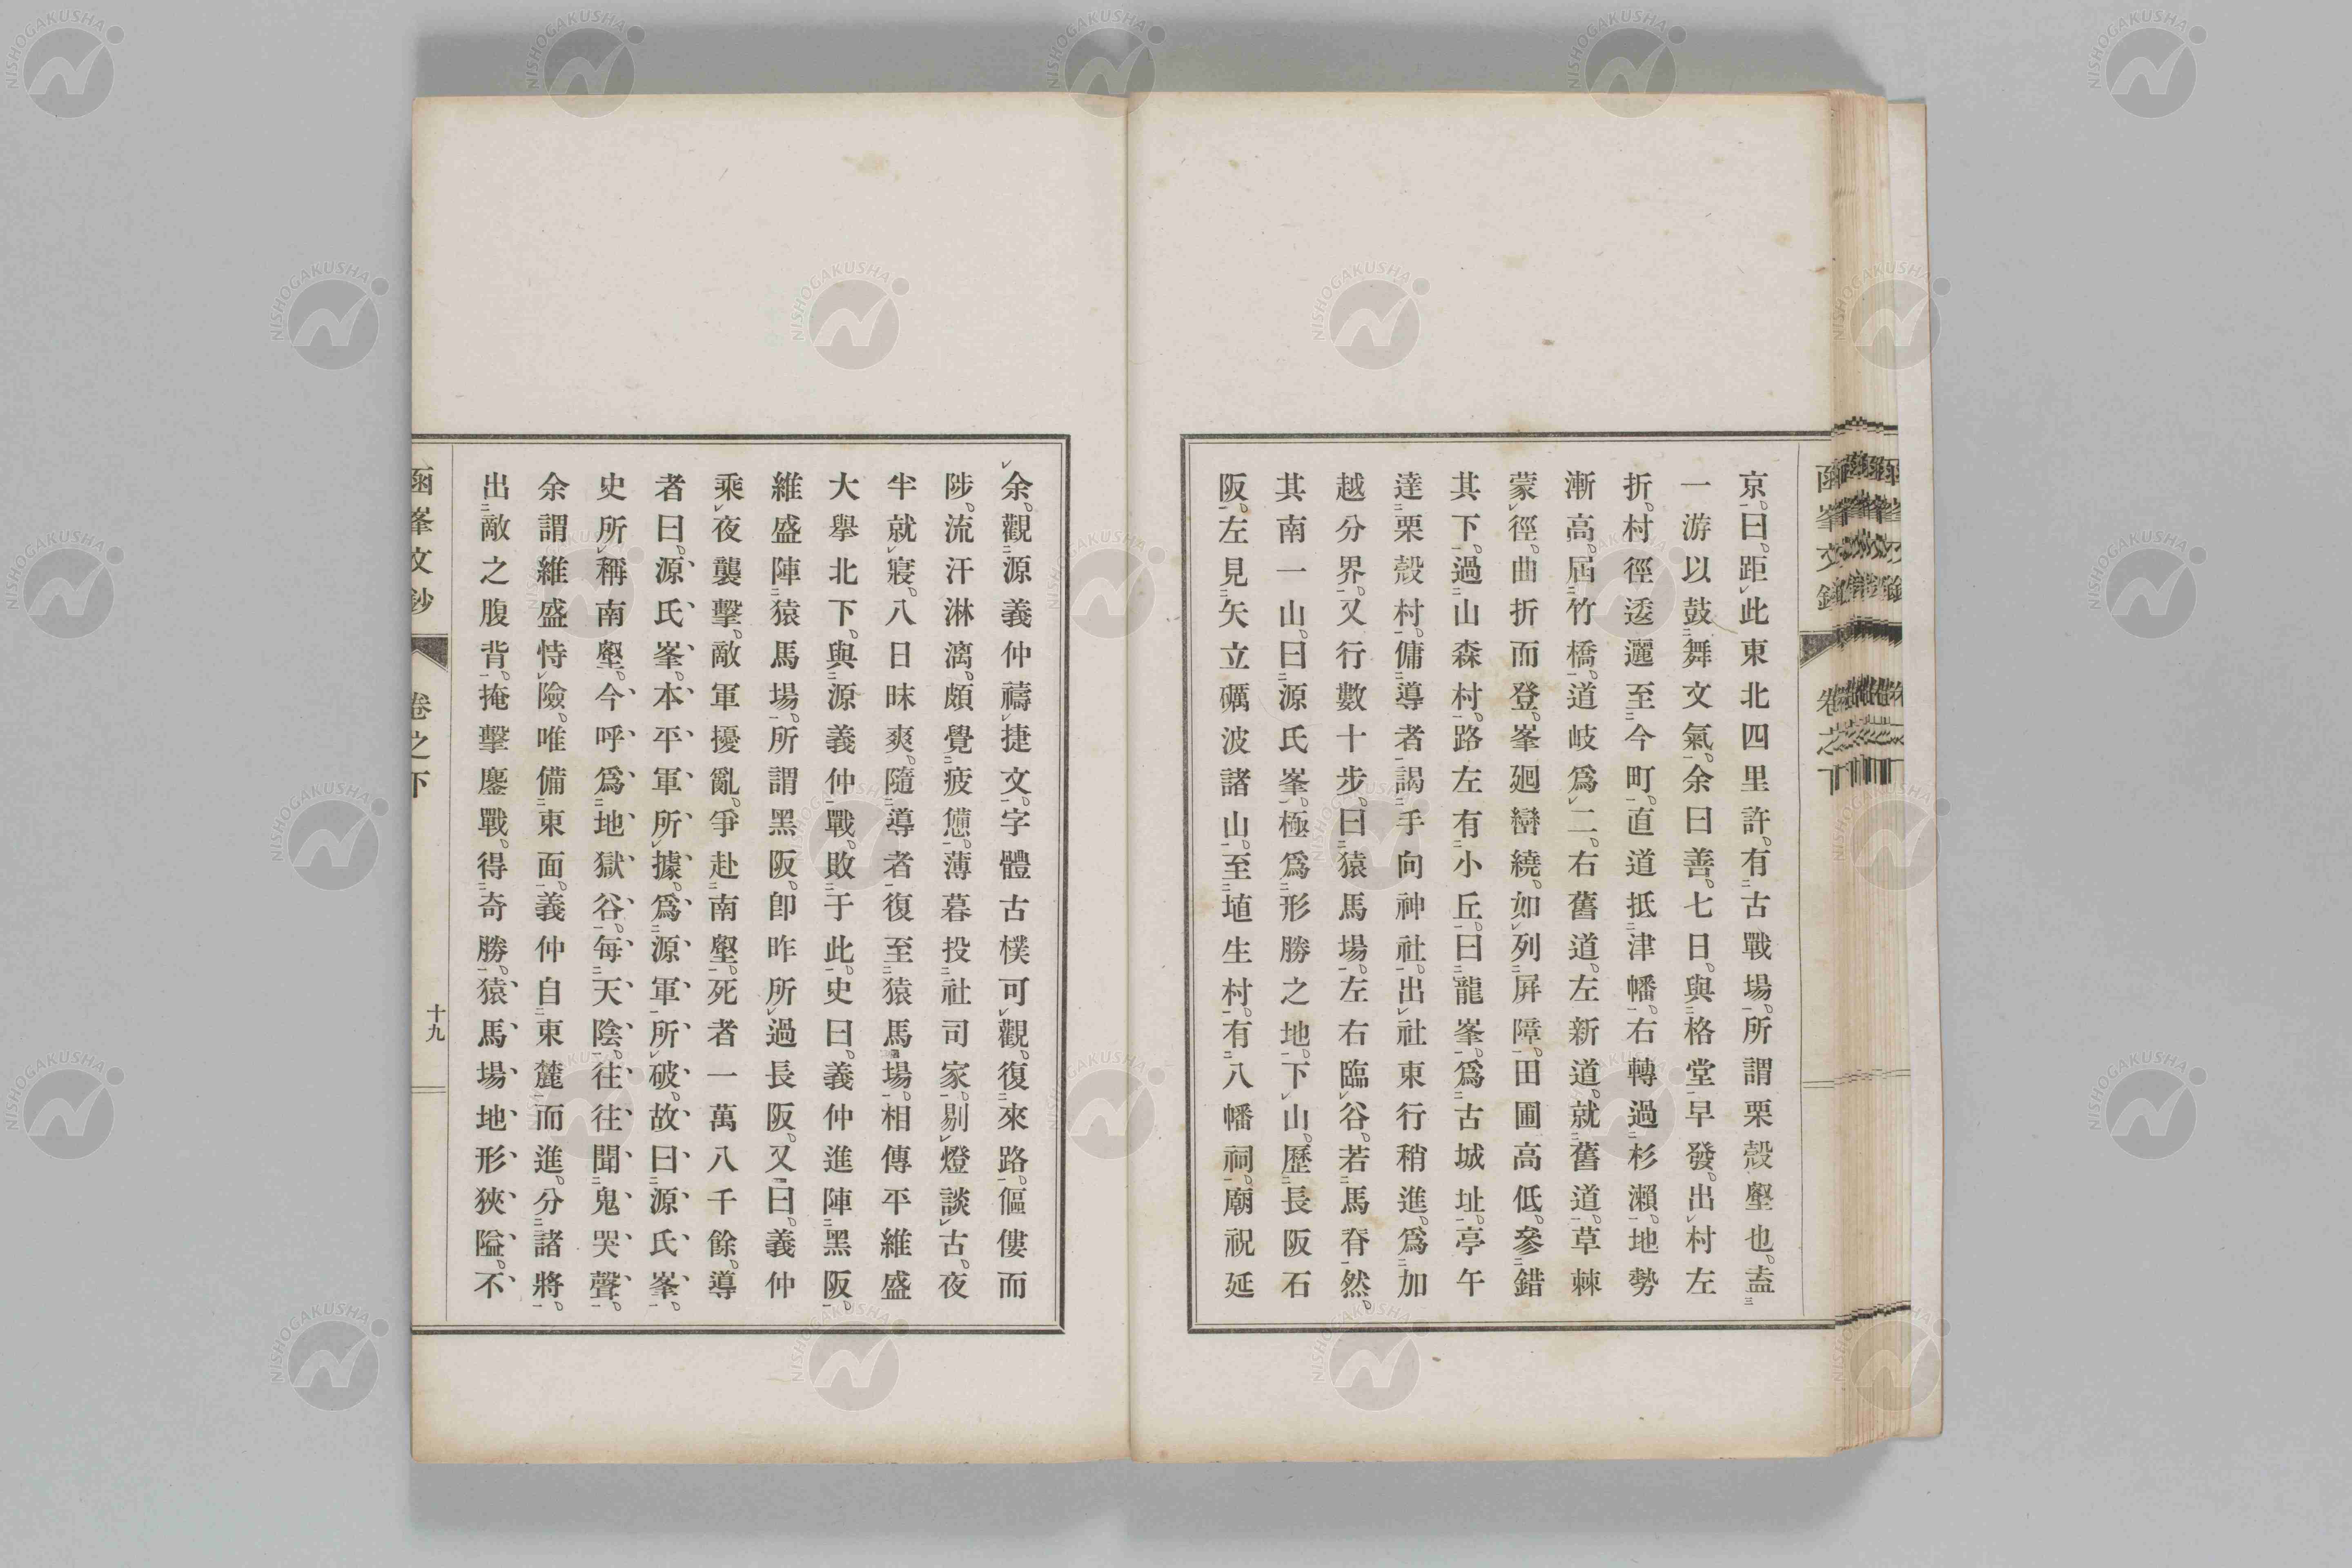 京。曰。距此東北四里許。有古戰場。所謂栗殼壑也。盍
一游以鼓舞文氣。余曰善。七日。與格堂早發。出村左
折。村徑逶邐至今町。直道抵津幡。右轉過杉瀬。地勢
漸高。屆竹橋。道岐爲二。右舊道。左新道。就舊道。草棘
蒙徑。曲折而登。峯廻巒繞。如列屏障。田圃高低。參錯
其下。過山森村。路左有小丘。曰龍峯。爲古城址。亭午
達栗殼村。傭導者。謁手向神社。出社東行稍進。爲加
越分界。又行數十步。曰猿馬場。左右臨谷。若馬脊然。
其南一山。曰源氏峯。極爲形勝之地。下山。歷長阪石
阪。左見矢立礪波諸山。至埴生村。有八幡祠。廟祝延
余。觀源義仲禱捷文。字體古樸可觀。復來路。傴僂而
陟。流汗淋漓。頗覺疲憊。薄暮投社司家。剔燈談古。夜
半就寢。八日昧爽。隨導者復至猿馬場。相傳平維盛
大擧北下。與源義仲戰。敗于此。史曰。義仲進陣黑阪。
維盛陣猿馬場。所謂黑阪。卽昨所過長阪。又曰。義仲
乘夜襲擊。敵軍擾亂。爭赴南壑。死者一萬八千餘。導
者曰。源氏峯。本平軍所據。爲源軍所破。故曰源氏峯。
史所稱南壑。今呼爲地獄谷。每天陰。往往聞鬼哭聲。
余謂維盛恃險。唯備東面。義仲自東麓而進。分諸將。
出敵之腹背。掩擊鏖戰。得奇勝。猿馬場地形狹隘。不
函峯文鈔
卷之下
十九